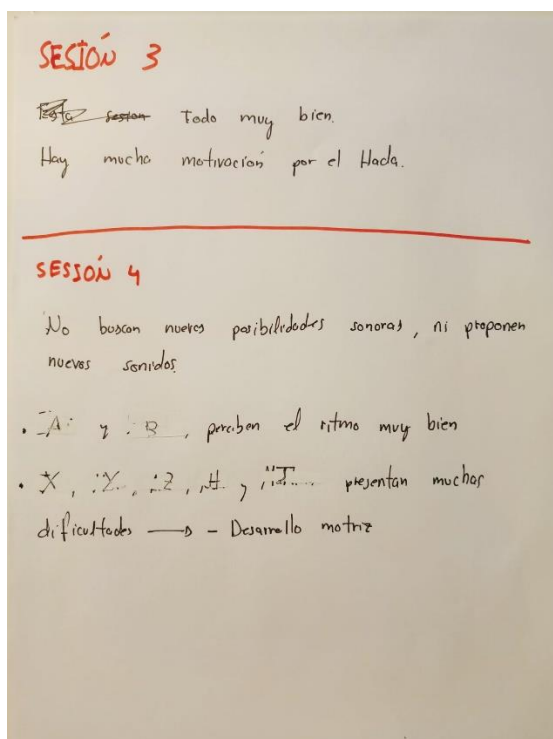 SESIÓN 3
Esta sesion Todo muy bien.
Hay mucha motivación por el Hada.
SESIÓN 4
No buscan nuevas posibilidades sonoras, ni proponen
nuevos sonidos.
• A y B, perciben el ritmo muy bien
• X, Y, Z, H y T presentan muchas
dificultades → - Desarrollo motriz